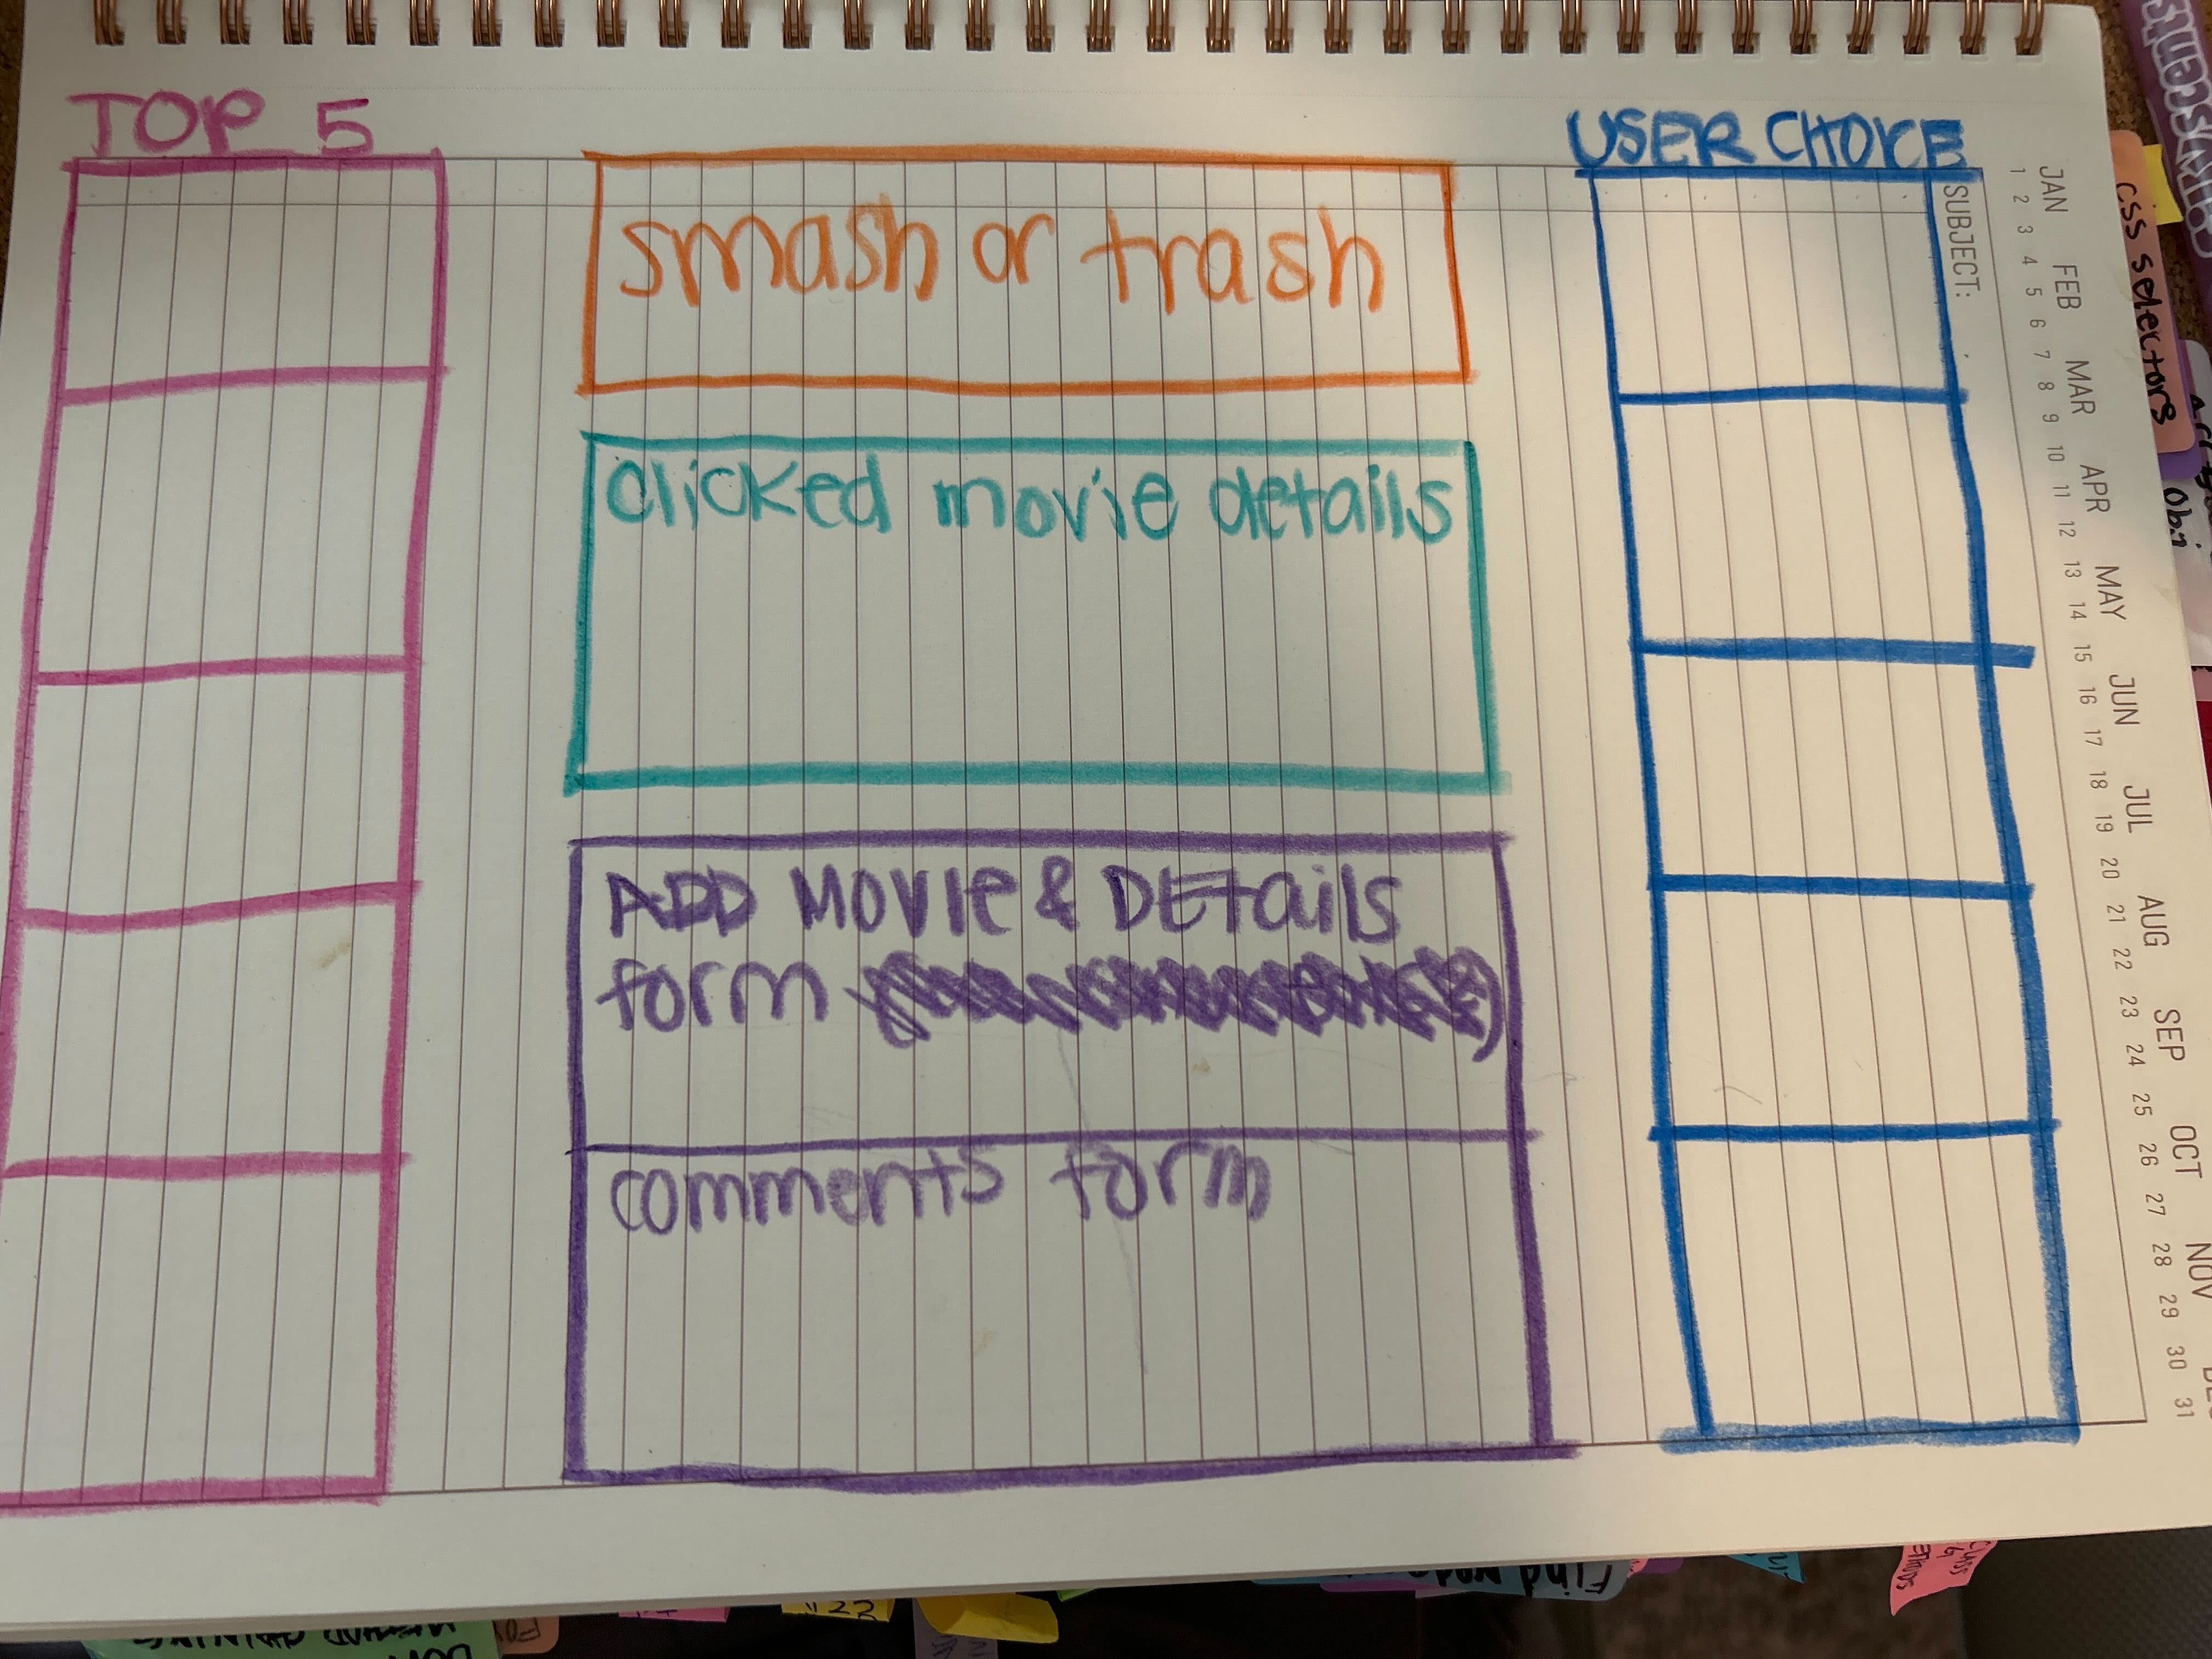 TOP 5
smash or trash
clicked movie details
ADD MOVIE & DETAILS
form
comments form
USER CHOICE
SUBJECT:
JAN FEB MAR APR MAY JUN JUL AUG SEP OCT NOV
1 2 3 4 5 6 7 8 9 10 11 12 13 14 15 16 17 18 19 20 21 22 23 24 25 26 27 28 29 30 31
css selectors
obj
Find
22